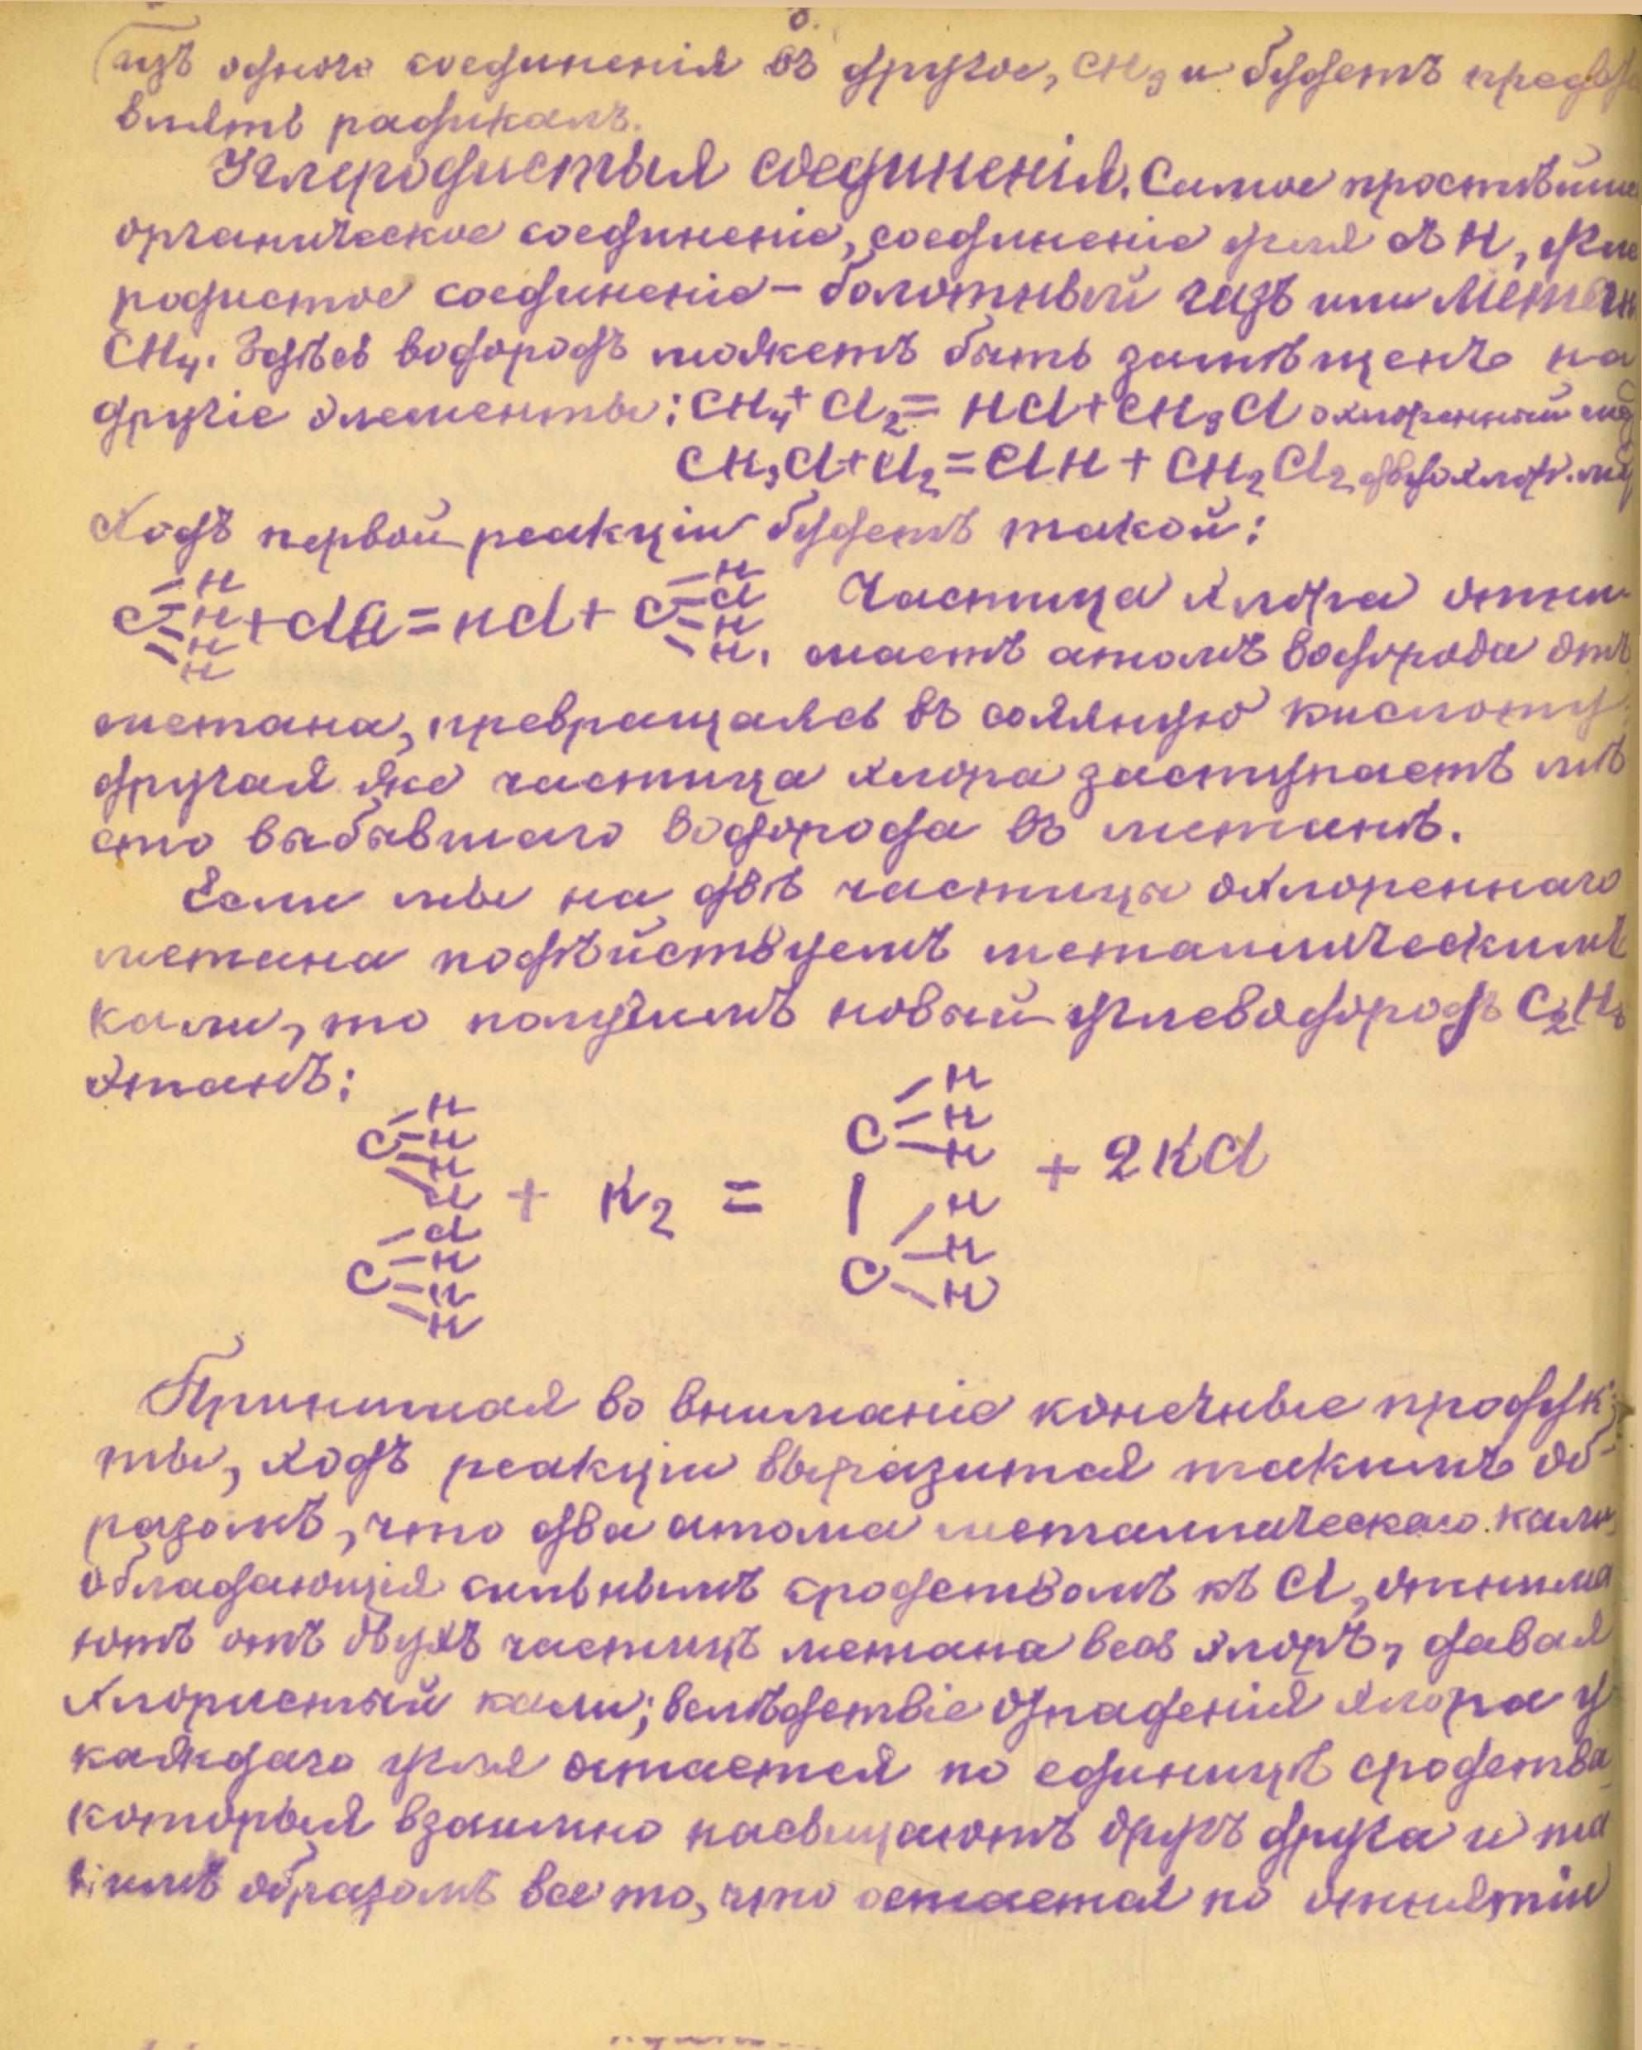 8.
изъ одного соединенія въ другое, CH3 и будетъ предста
влять радикалъ.
Углеродистыя соединенія. Самое простѣйшее
органическое соединеніе, соединеніе угля съ H, угле
родистое соединеніе – болотный газъ или Метанъ
CH4. Здѣсь водородъ можетъ быть замѣщенъ на
другіе элементы: CH4 + Cl2 = HCl + CH3Cl охлоренный мет
CH3Cl + Cl2 = ClH + CH2Cl2 двухохлор. мет
Ходъ первой реакціи будетъ такой:
C H H H H + ClCl = HCl + C H Cl H H. Частица хлора отни-
маетъ атомъ водорода отъ
метана, превращаясь въ соляную кислоту,
другая же частица хлора заступаетъ мѣ
сто выбывшаго водорода въ метанѣ.
Если мы на двѣ частицы охлореннаго
метана подѣйствуемъ металлическимъ
кали, то получимъ новый углеводородъ C2H6
этанъ:
C H H H Cl
Cl C H H H + K2 = C H H H | C H H H + 2KCl
Принимая во вниманіе конечные продук-
ты, ходъ реакціи выразится такимъ об-
разомъ, что два атома металлическаго кали,
обладающія сильнымъ сродствомъ къ Cl, отнима
ютъ отъ двухъ частицъ метана весь хлоръ, давая
хлористый кали; вслѣдствіе отпаденія хлора у
каждаго угля остается по единицѣ сродства,
которыя взаимно насыщаютъ другъ друга и та
кимъ образомъ все то, что остается по отнятіи